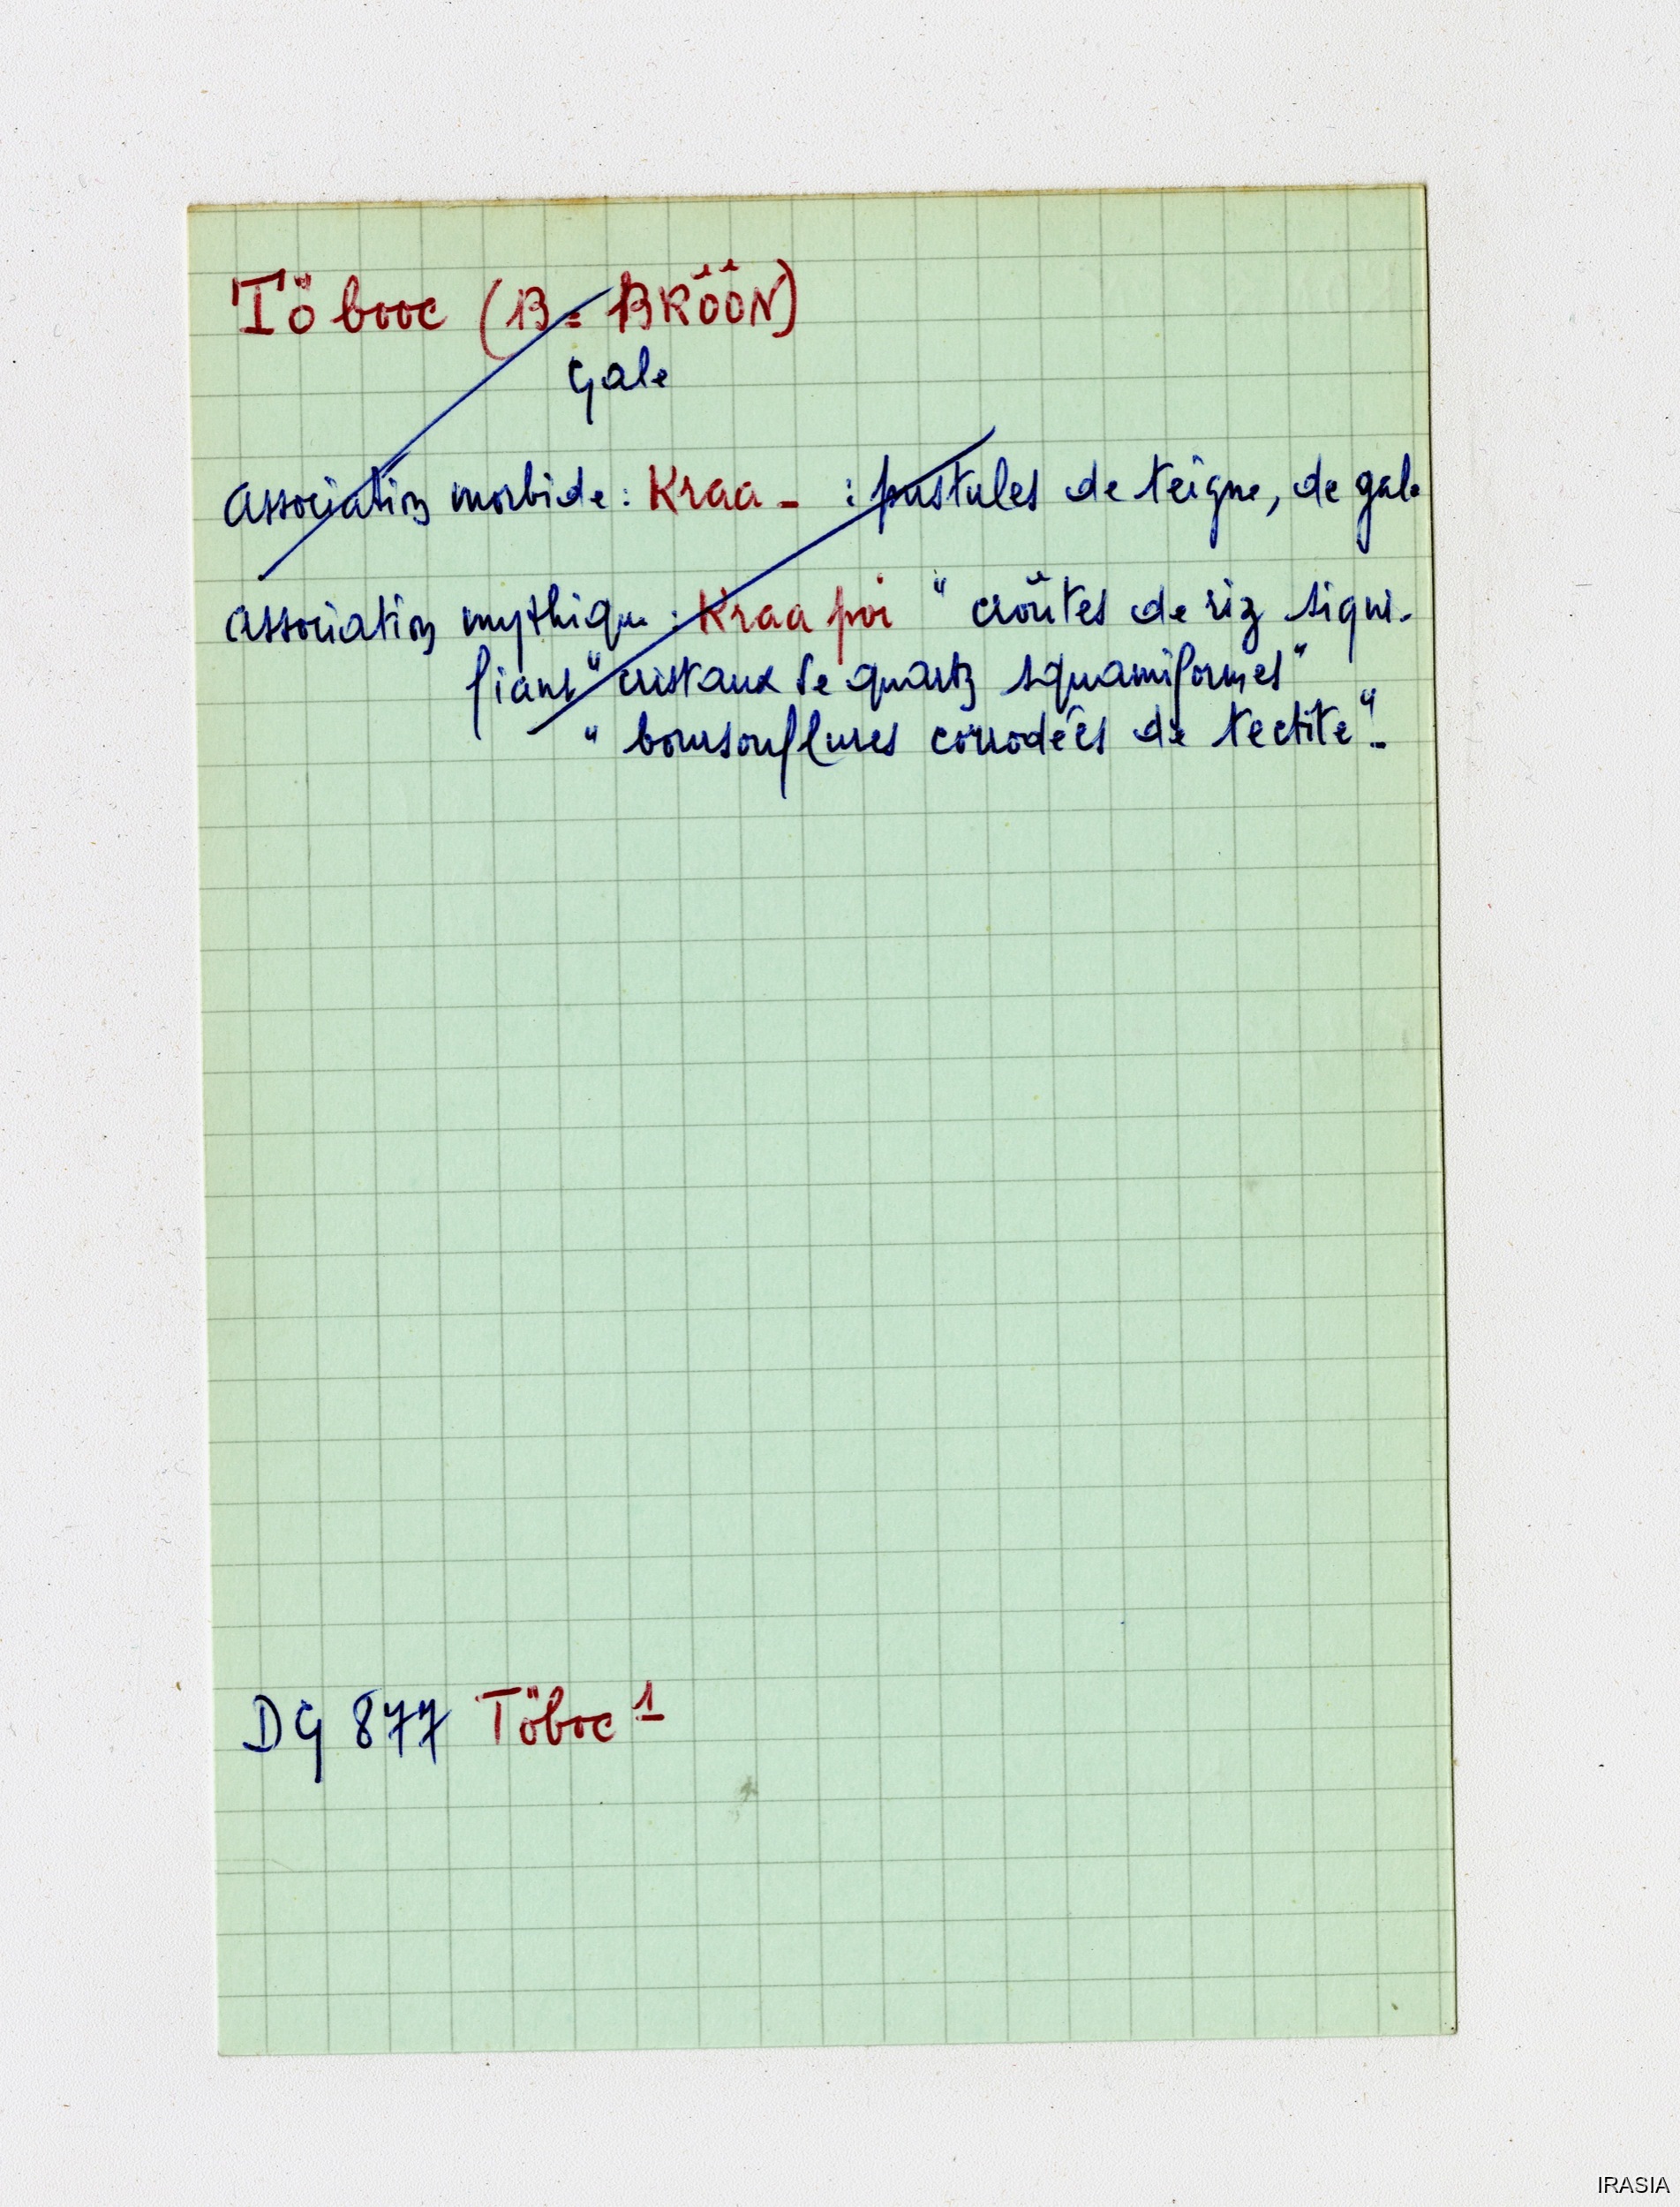 Töbooc (B = BRÔÔN)
Gale
Association morbide : Kraa - : pustules de teigne, de gale
Association mythique : Kraa poi " croûtes de riz signi-
fiant " cristaux de quartz squamiformes"
" boursouflures corrodées de tectite".
DG 877 Töboc 1
IRASIA